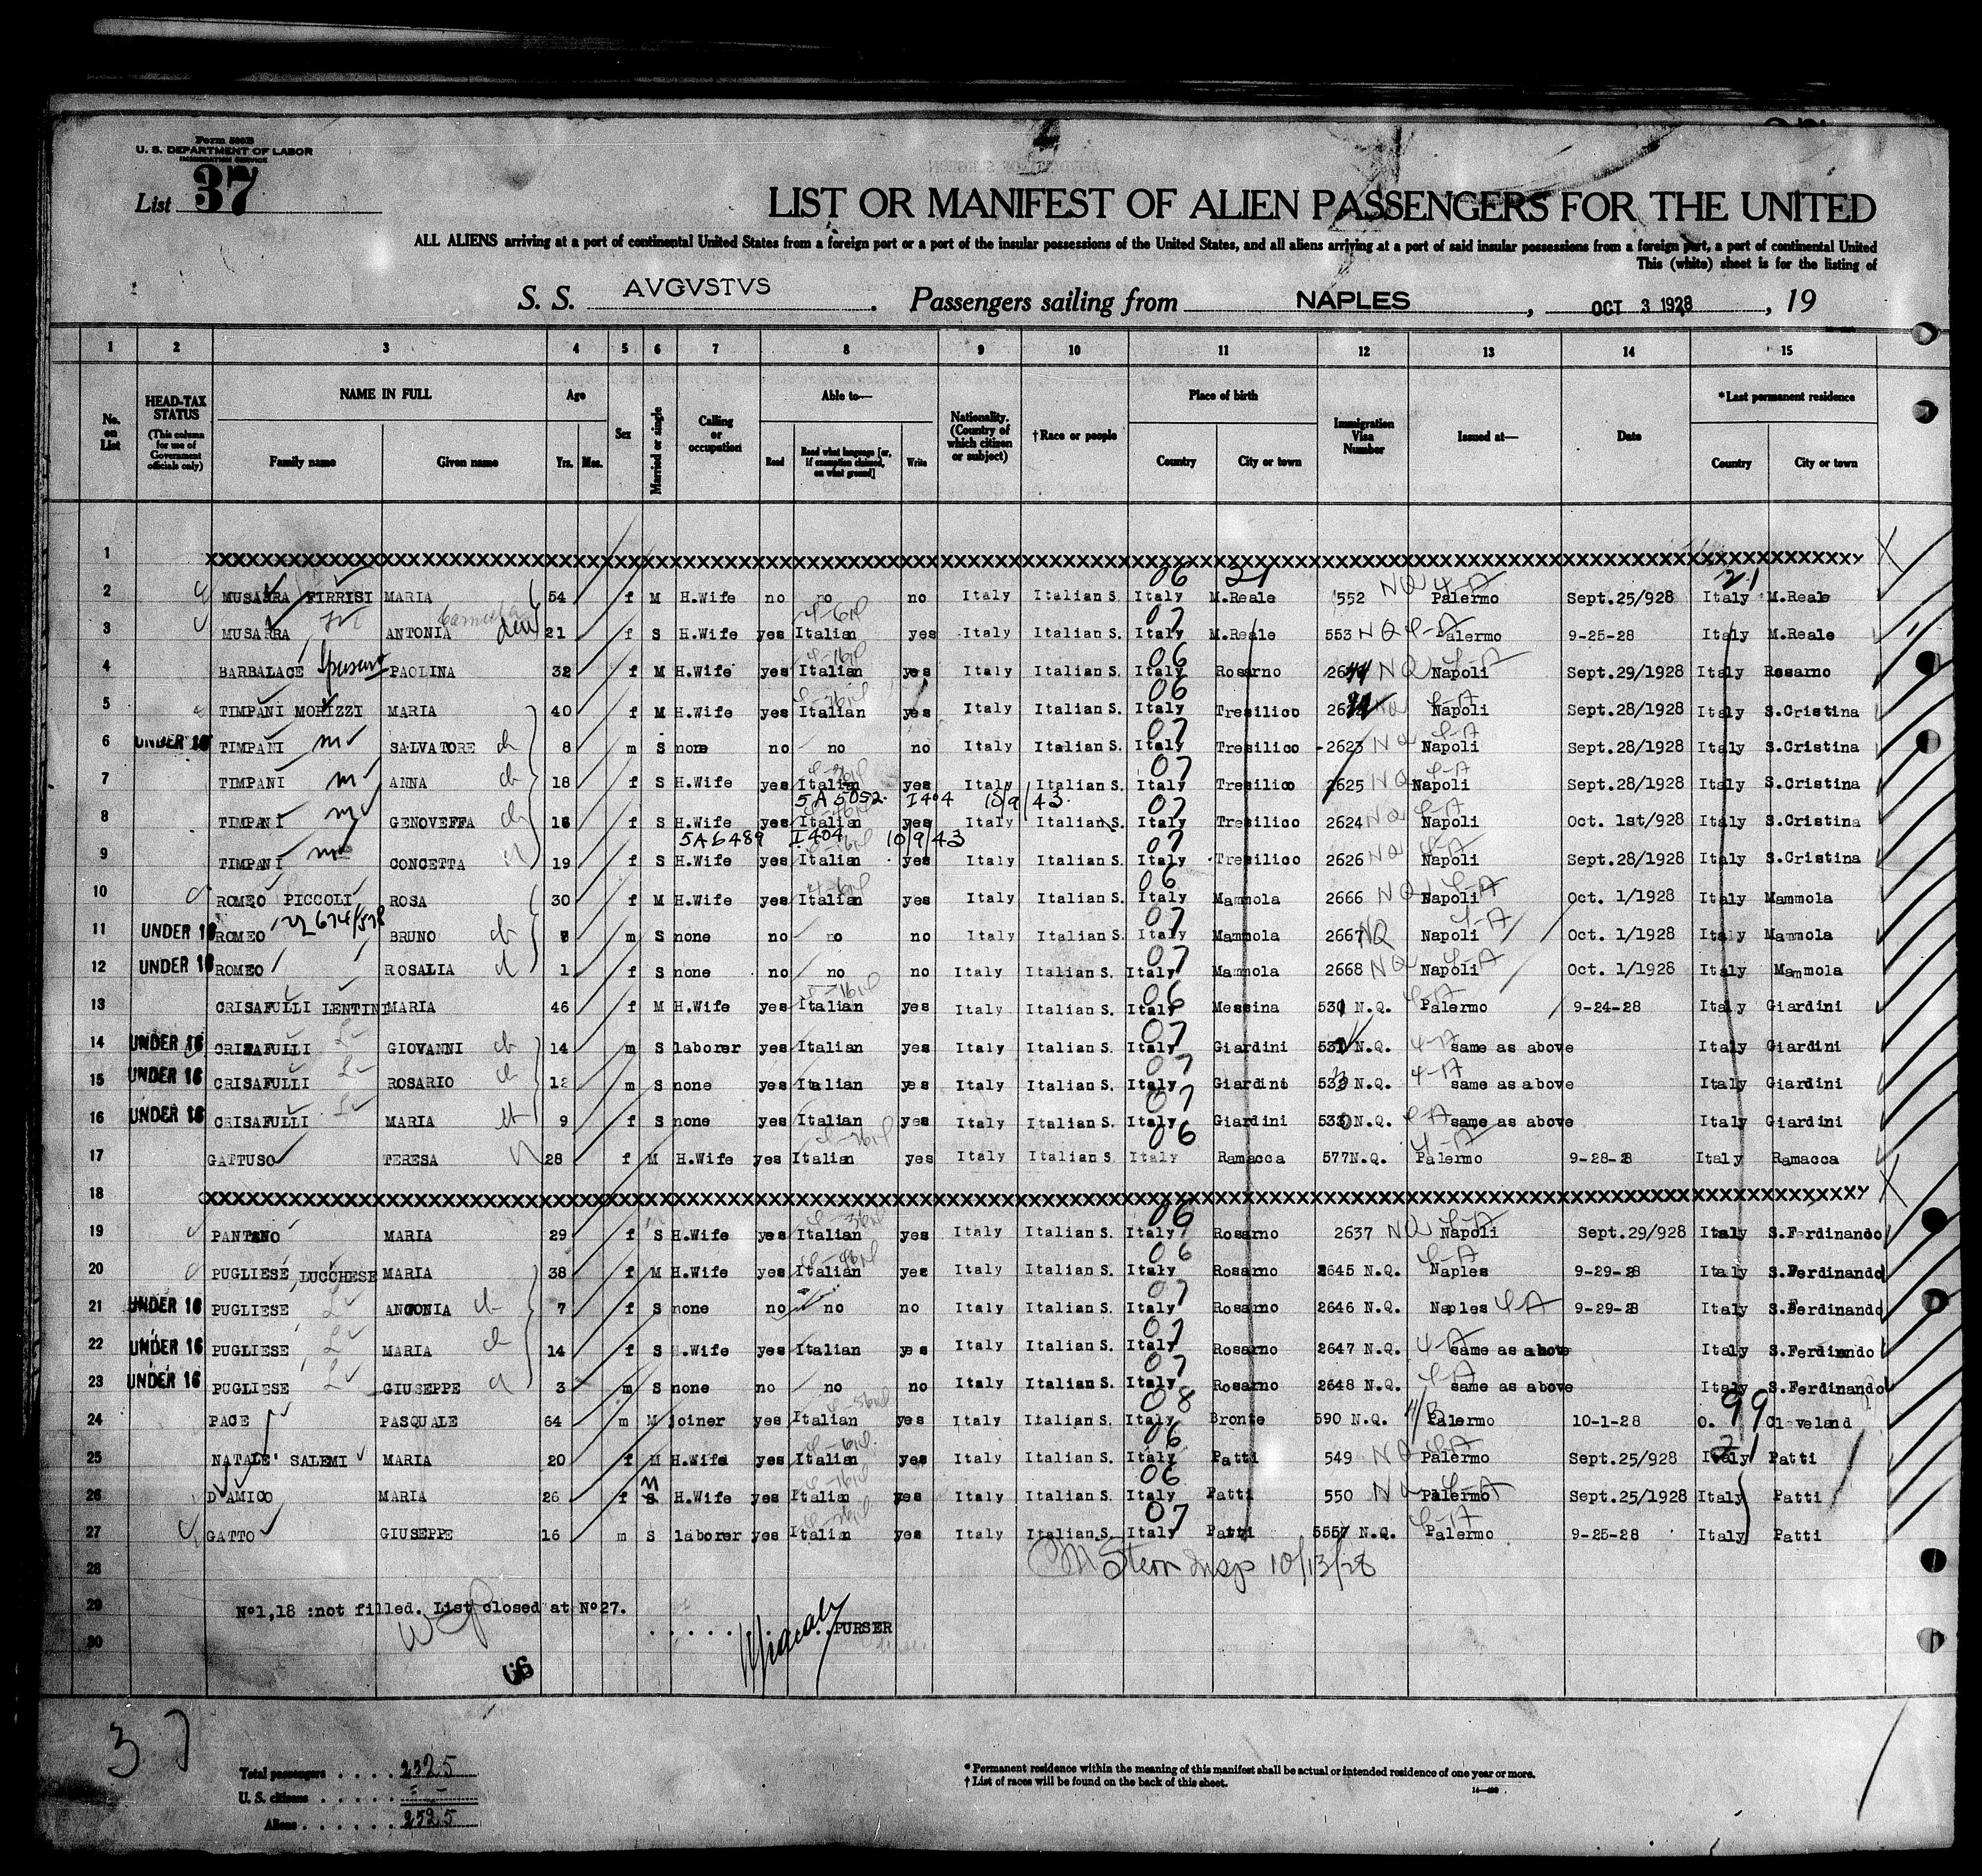 Form 500B
U. S. DEPARTMENT OF LABOR
IMMIGRATION SERVICE
List 37
LIST OR MANIFEST OF ALIEN PASSENGERS FOR THE UNITED
ALL ALIENS arriving at a port of continental United States from a foreign port or a port of the insular possessions of the United States, and all aliens arriving at a port of said insular possessions from a foreign port, a port of continental United
This (white) sheet is for the listing of
S. S. AVGVSTVS. Passengers sailing from NAPLES, OCT 3 1928, 19
1 2 3 4 5 6 7 8 9 10 11 12 13 14 15
No. on List
HEAD-TAX STATUS (This column for use of Government officials only)
NAME IN FULL Family name Given name
Age Yrs. Mos.
Sex
Married or single
Calling or occupation
Able to— Read Read what language [or, if exemption claimed, on what ground] Write
Nationality. (Country of which citizen or subject)
†Race or people
Place of birth Country City or town
Immigration Visa Number
Issued at—
Date
*Last permanent residence Country City or town
1 XXXXXXXXXXXXXXXXXXXXXXXXXXXXXXXX
2 MUSARRA FIRRISI MARIA 54 f M H.Wife no no no Italy Italian S. Italy 06 M.Reale 21 552 NQ 4-A Palermo Sept.25/928 Italy 21 M.Reale
3 MUSARRA ANTONIA 21 f S H.Wife yes Italian yes Italy Italian S. Italy 07 M.Reale 553 NQ 4-A Palermo 9-25-28 Italy M.Reale
4 BARBALACE PAOLINA 32 f M H.Wife yes Italian yes Italy Italian S. Italy 06 Rosarno 2644 NQ 4-A Napoli Sept.29/1928 Italy Rosarno
5 TIMPANI MORIZZI MARIA 40 f M H.Wife yes Italian yes Italy Italian S. Italy 06 Tresilico NQ 4-A Napoli Sept.28/1928 Italy S.Cristina
6 UNDER 16 TIMPANI m SALVATORE ch 8 m S none no no no Italy Italian S. Italy 07 Tresilico 2623 NQ 4-A Napoli Sept.28/1928 Italy S.Cristina
7 TIMPANI m ANNA ch 18 f S H.Wife yes Italian yes Italy Italian S. Italy 07 Tresilico 2625 NQ 4-A Napoli Sept.28/1928 Italy S.Cristina
5A 5052. I404 10/9/43.
8 TIMPANI m GENOVEFFA ch 16 f S H.Wife yes Italian yes Italy Italian S. Italy 07 Tresilico 2624 NQ 4-A Napoli Oct. 1st/928 Italy S.Cristina
5A6489 I404 10/9/43
9 TIMPANI m CONCETTA 19 f S H.Wife yes Italian yes Italy Italian S. Italy 07 Tresilico 2626 NQ 4-A Napoli Sept.28/1928 Italy S.Cristina
10 ROMEO PICCOLI ROSA 30 f M H.Wife yes Italian yes Italy Italian S. Italy 06 Mammola 2666 NQ 4-A Napoli Oct. 1/1928 Italy Mammola
11 UNDER 16 ROMEO BRUNO ch m S none no no no Italy Italian S. Italy 07 Mammola 2667 NQ 4-A Napoli Oct. 1/1928 Italy Mammola
12 UNDER 16 ROMEO ROSALIA 1 f S none no no no Italy Italian S. Italy 07 Mammola 2668 NQ 4-A Napoli Oct. 1/1928 Italy Mammola
13 CRISAFULLI LENTINI MARIA 46 f M H.Wife yes Italian yes Italy Italian S. Italy 06 Messina 530 N.Q. 4-A Palermo 9-24-28 Italy Giardini
14 UNDER 16 CRISAFULLI L GIOVANNI ch 14 m S laborer yes Italian yes Italy Italian S. Italy 07 Giardini 531 N.Q. 4-A same as above Italy Giardini
15 UNDER 16 CRISAFULLI L ROSARIO ch 12 m S none yes Italian yes Italy Italian S. Italy 07 Giardini N.Q. 4-A same as above Italy Giardini
16 UNDER 16 CRISAFULLI L MARIA ch 9 f S none yes Italian yes Italy Italian S. Italy 07 Giardini N.Q. 4-A same as above Italy Giardini
17 GATTUSO TERESA 28 f M H.Wife yes Italian yes Italy Italian S. Italy 06 Ramacca 577N.Q. 4-A Palermo 9-28-28 Italy Ramacca
18 XXXXXXXXXXXXXXXXXXXXXXXXXXXXXXXX
19 PANTANO MARIA 29 f S H.Wife yes Italian yes Italy Italian S. Italy 06 Rosarno 2637 NQ 4-A Napoli Sept.29/928 Italy S.Ferdinando
20 PUGLIESE LUCCHESE MARIA 38 f M H.Wife yes Italian yes Italy Italian S. Italy 06 Rosarno 2645 N.Q. 4-A Naples 9-29-28 Italy S.Ferdinando
21 UNDER 16 PUGLIESE L ANTONIA ch 7 f S none no no no Italy Italian S. Italy 07 Rosarno 2646 N.Q. Naples 4-A 9-29-28 Italy S.Ferdinando
22 UNDER 16 PUGLIESE L MARIA ch 14 f S H.Wife yes Italian yes Italy Italian S. Italy 07 Rosarno 2647 N.Q. 4-A same as above Italy S.Ferdinando
23 UNDER 16 PUGLIESE L GIUSEPPE 3 m S none no no no Italy Italian S. Italy 07 Rosarno 2648 N.Q. 4-A same as above Italy S.Ferdinando
24 PACE PASQUALE 64 m M joiner yes Italian yes Italy Italian S. Italy 08 Bronte 590 N.Q. Palermo 10-1-28 O. 99 Cleveland
25 NATALE' SALEMI MARIA 20 f M H.Wife yes Italian yes Italy Italian S. Italy 06 Patti 549 NQ 4-A Palermo Sept.25/928 Italy 21 Patti
26 D'AMICO MARIA 26 f S H.Wife yes Italian yes Italy Italian S. Italy 06 Patti 550 NQ 4-A Palermo Sept.25/1928 Italy Patti
27 GATTO GIUSEPPE 16 m S laborer yes Italian yes Italy Italian S. Italy 07 Patti N.Q. 4-A Palermo 9-25-28 Italy Patti
28 Stern Insp 10/13/28
29 No1,18 :not filled. List closed at No27.
30 PURSER
66
37
Total passengers . . . . 2525
U. S. citizens . . . . . –
Aliens . . . . . . 2525
* Permanent residence within the meaning of this manifest shall be actual or intended residence of one year or more.
† List of races will be found on the back of this sheet.